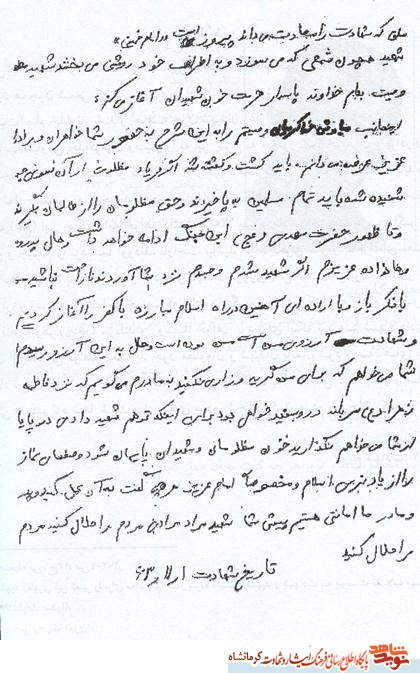 ملتی که شهادت را سعادت می داند پیروز است «امام خمینی»
شهید همچون شمعی که می سوزد و به اطراف خود روشنی می بخشد شهید
وصیت بنام خداوند پاسدار حرمت خون شهیدان آغاز می کنم
اینجانب وصیتم را به این شرح به حضور شما خواهران و برادران
عزیزی عرضه می دارم باید کشت و کشته شد اگر فریاد مظلومیت از آن
شنیده شد باید تمام مسلمین به پا خیزند و حق مظلومان را از ظالمان بگیرند
و تا ظهور حضرت مهدی (عج) این جنگ ادامه خواهد داشت و حال پدر و
خانواده عزیزم اگر شهید شدم و جسدم نزد شما آوردند ناراحت نباشید
با فکر باز و با اراده ای آهنین در راه اسلام مبارزه با کفر را آغاز کردم
و شهادت آرزوی من است بوده است و حال به این آرزو رسیدم از
شما می خواهم که برای من گریه و زاری نکنید به مادرم می گویم که نزد فاطمه
زهرا (س) سربلند و روسفید خواهی بود برای اینکه تو هم شهید دادی در پایان
از شما می خواهم نگذارید خون مظلومان و شهیدان پایمال شود و صفهای نماز
را از یاد نبرید اسلام و مخصوصاً امام عزیز هر چه گفت به آن عمل کنید پدر
و مادر ما امانتی هستیم پیش شما شهید مراد مرادی مردم مرا حلال کنید مردم
مرا حلال کنید
تاریخ شهادت
نوید شاهد
پایگاه اطلاع رسانی فرهنگ ایثار و شهادت کرمانشاه